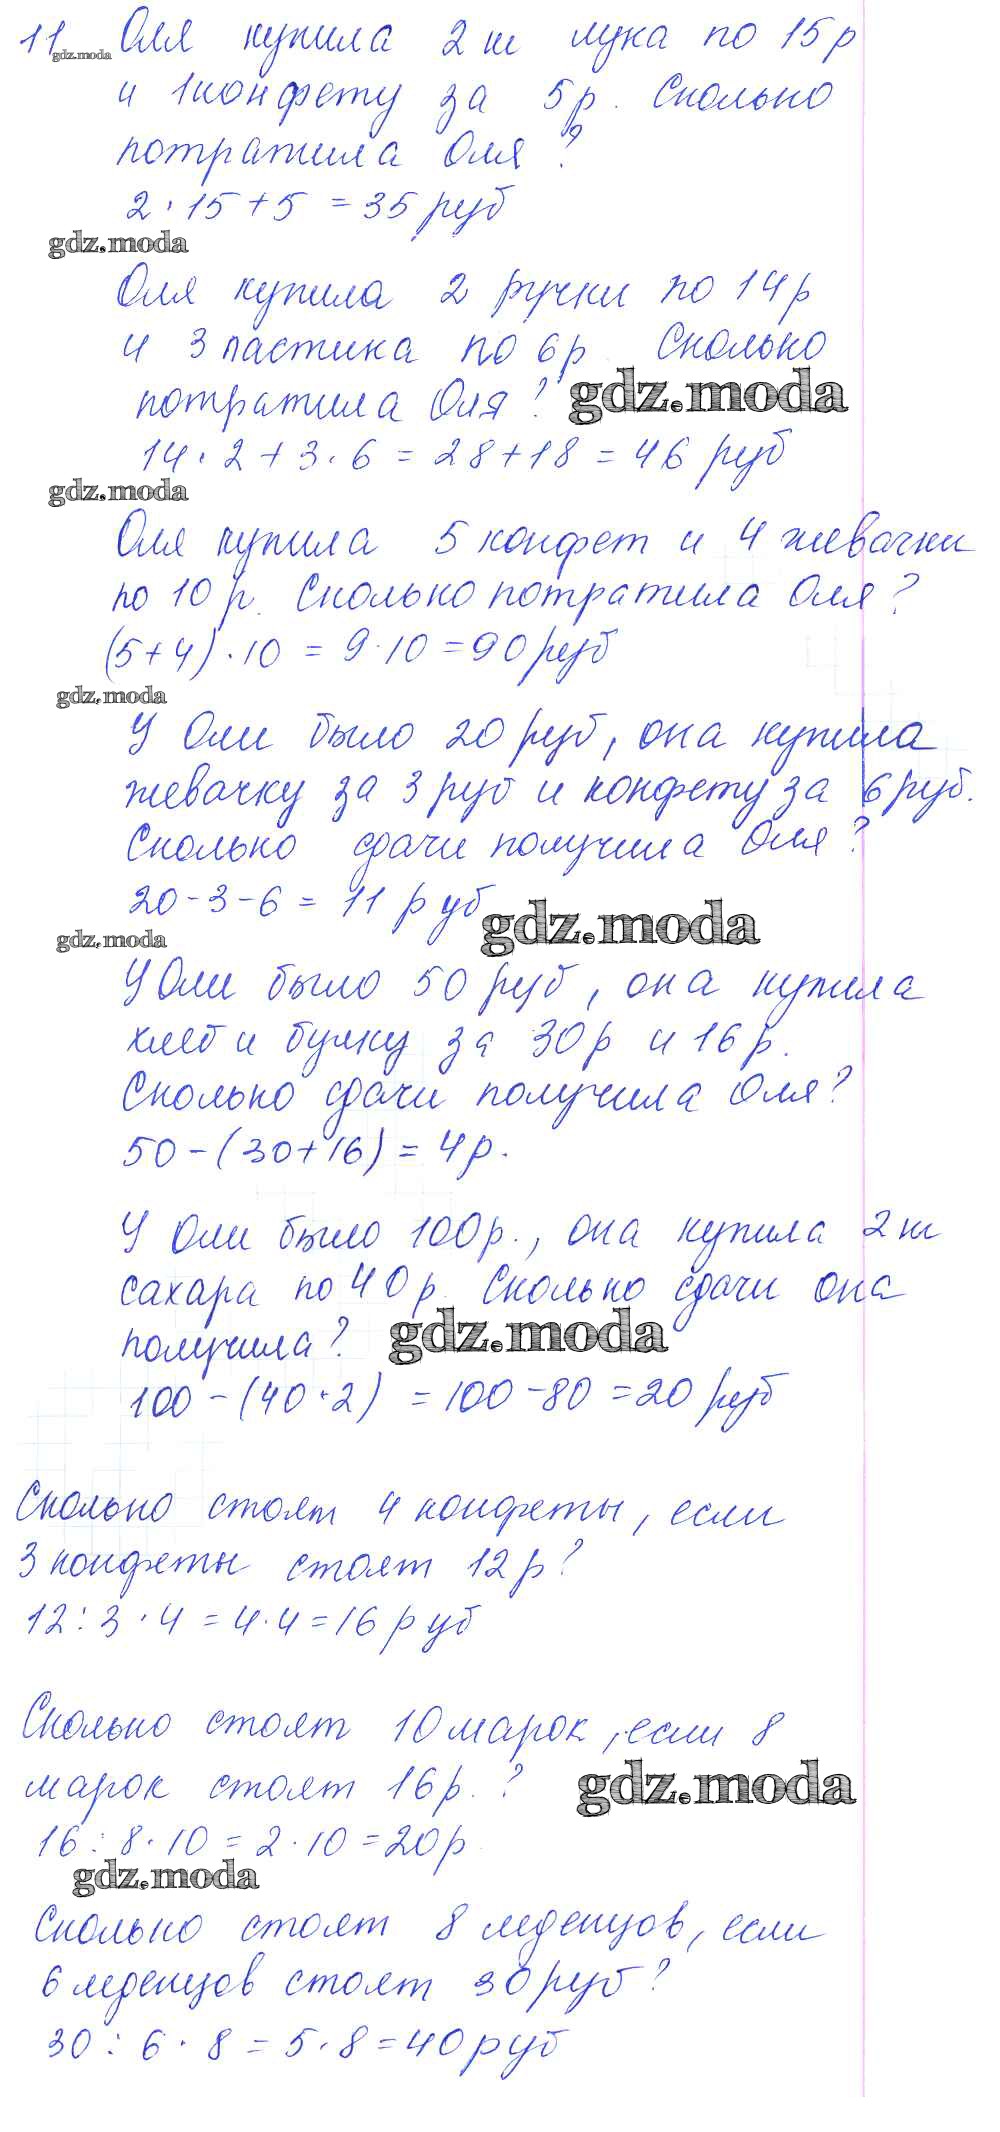 11 Оля купила 2 ш лука по 15 р
gdz.moda
и 1 конфету за 5 р. Сколько
потратила Оля?
2 · 15 + 5 = 35 руб
gdz.moda
Оля купила 2 ручки по 14 р
и 3 ластика по 6 р Сколько
потратила Оля?
gdz.moda
14 · 2 + 3 · 6 = 28 + 18 = 46 руб
gdz.moda
Оля купила 5 конфет и 4 жевачки
по 10 р. Сколько потратила Оля?
(5+4) · 10 = 9 · 10 = 90 руб
gdz.moda
У Оли было 20 руб, она купила
жевачку за 3 руб и конфету за 6 руб.
Сколько сдачи получила Оля?
20 - 3 - 6 = 11 руб
gdz.moda
gdz.moda
У Оли было 50 руб, она купила
хлеб и булку за 30 р и 16 р.
Сколько сдачи получила Оля?
50 - (30 + 16) = 4 р.
У Оли было 100 р., она купила 2 ш
сахара по 40 р. Сколько сдачи она
получила?
gdz.moda
100 - (40 · 2) = 100 - 80 = 20 руб
Сколько стоят 4 конфеты, если
3 конфеты стоят 12 р?
12 : 3 · 4 = 4 · 4 = 16 руб
Сколько стоят 10 марок, если 8
марок стоят 16 р. ?
gdz.moda
16 : 8 · 10 = 2 · 10 = 20 р
gdz.moda
Сколько стоят 8 леденцов, если
6 леденцов стоят 30 руб?
30 : 6 · 8 = 5 · 8 = 40 руб